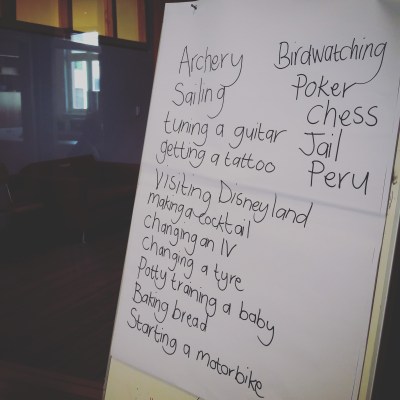 Archery
Sailing
tuning a guitar
getting a tattoo
Visiting Disneyland
making a cocktail
changing an IV
changing a tyre
Potty training a baby
Baking bread
Starting a motorbike
Birdwatching
Poker
Chess
Jail
Peru